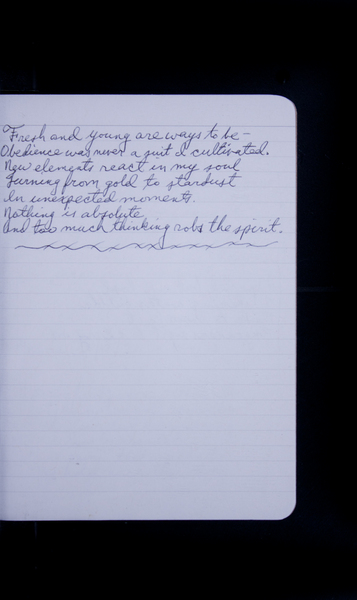 Fresh and young are ways to be-
Obedience was never a suit I cultivated.
New elements react in my soul
Turning from gold to stardust
In unexpected moments.
Nothing is absolute
And too much thinking robs the spirit.